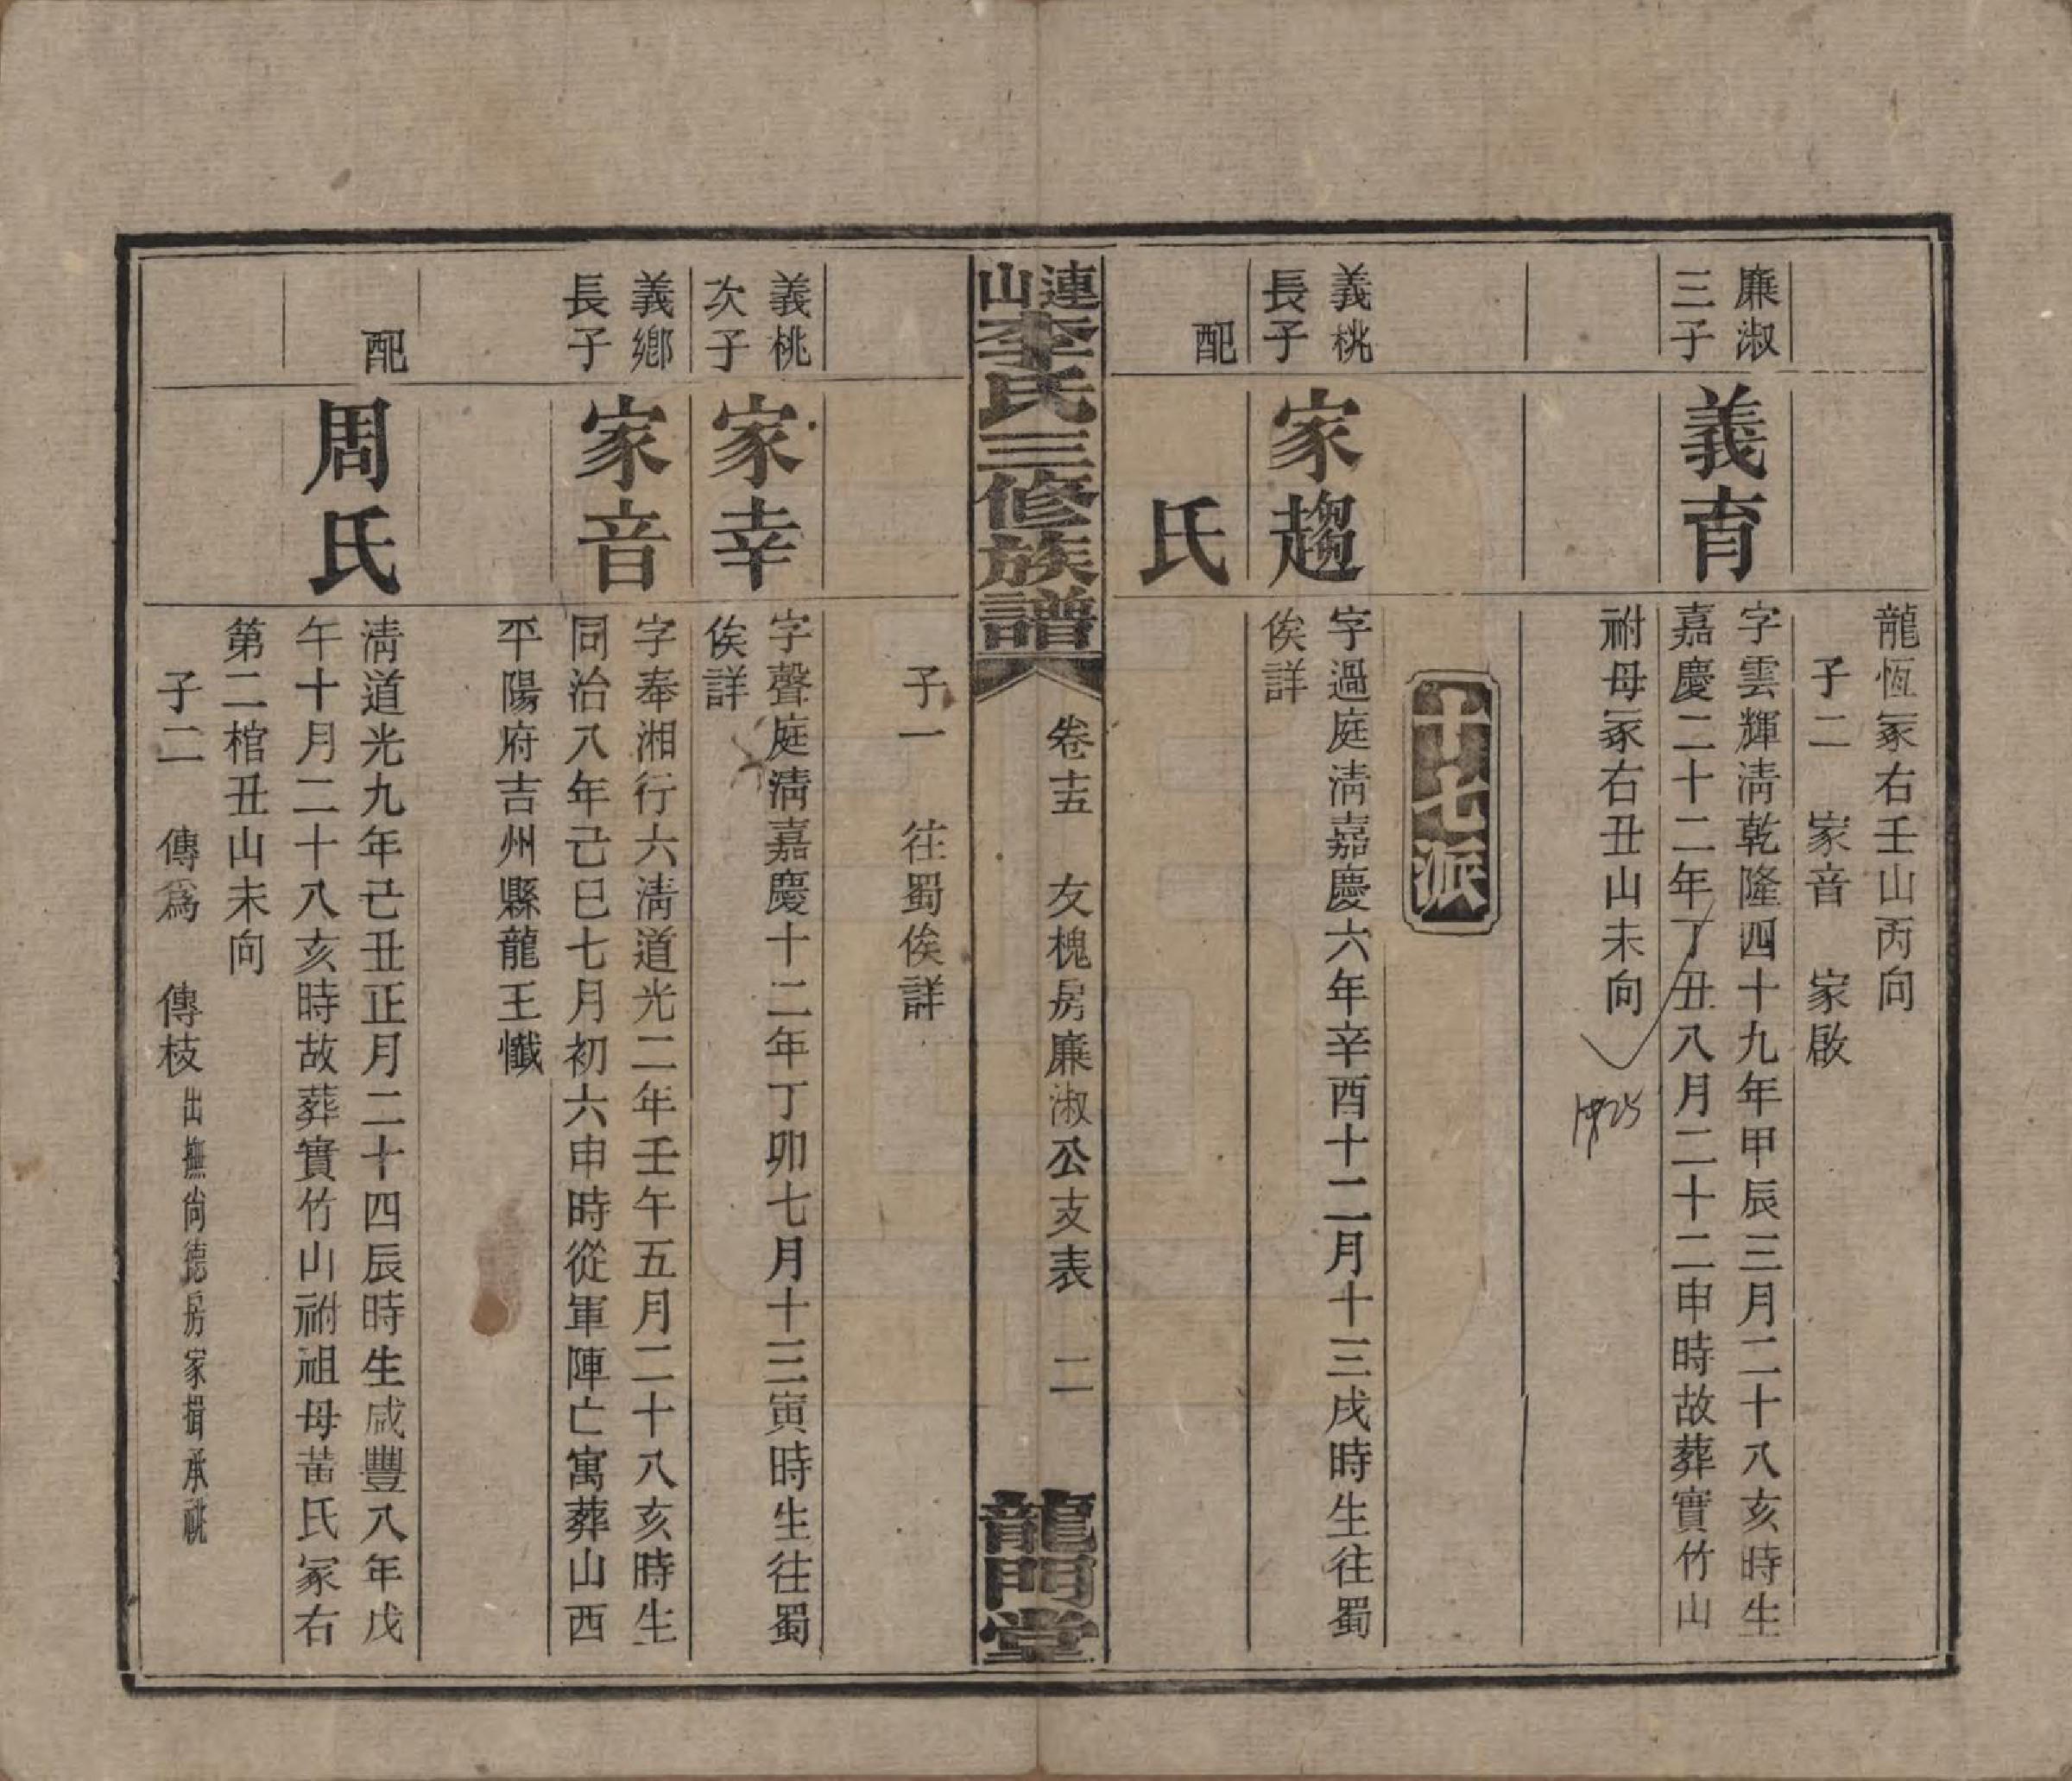 龍恆冢右壬山丙向
子二　家音　家啟
廉淑
三子
義育
字雲輝淸乾隆四十九年甲辰三月二十八亥時生
嘉慶二十二年丁丑八月二十二申時故葬實竹山
祔母冢右丑山未向
十七派
義桃
長子
家趨
字過庭淸嘉慶六年辛酉十二月十三戌時生往蜀
俟詳
配
氏
連山李氏三修族譜
卷十五　友槐房廉淑公支表　二
龍門堂
子一　往蜀俟詳
義桃
次子
家幸
字聲庭淸嘉慶十二年丁卯七月十三寅時生往蜀
俟詳
義鄉
長子
家音
字奉湘行六淸道光二年壬午五月二十八亥時生
同治八年己巳七月初六申時從軍陣亡寓葬山西
平陽府吉州縣龍王懺
配
周氏
淸道光九年己丑正月二十四辰時生咸豐八年戊
午十月二十八亥時故葬實竹山祔祖母黃氏冢右
第二棺丑山未向
子二　傳爲　傳枝出撫尙德房家揖承祧